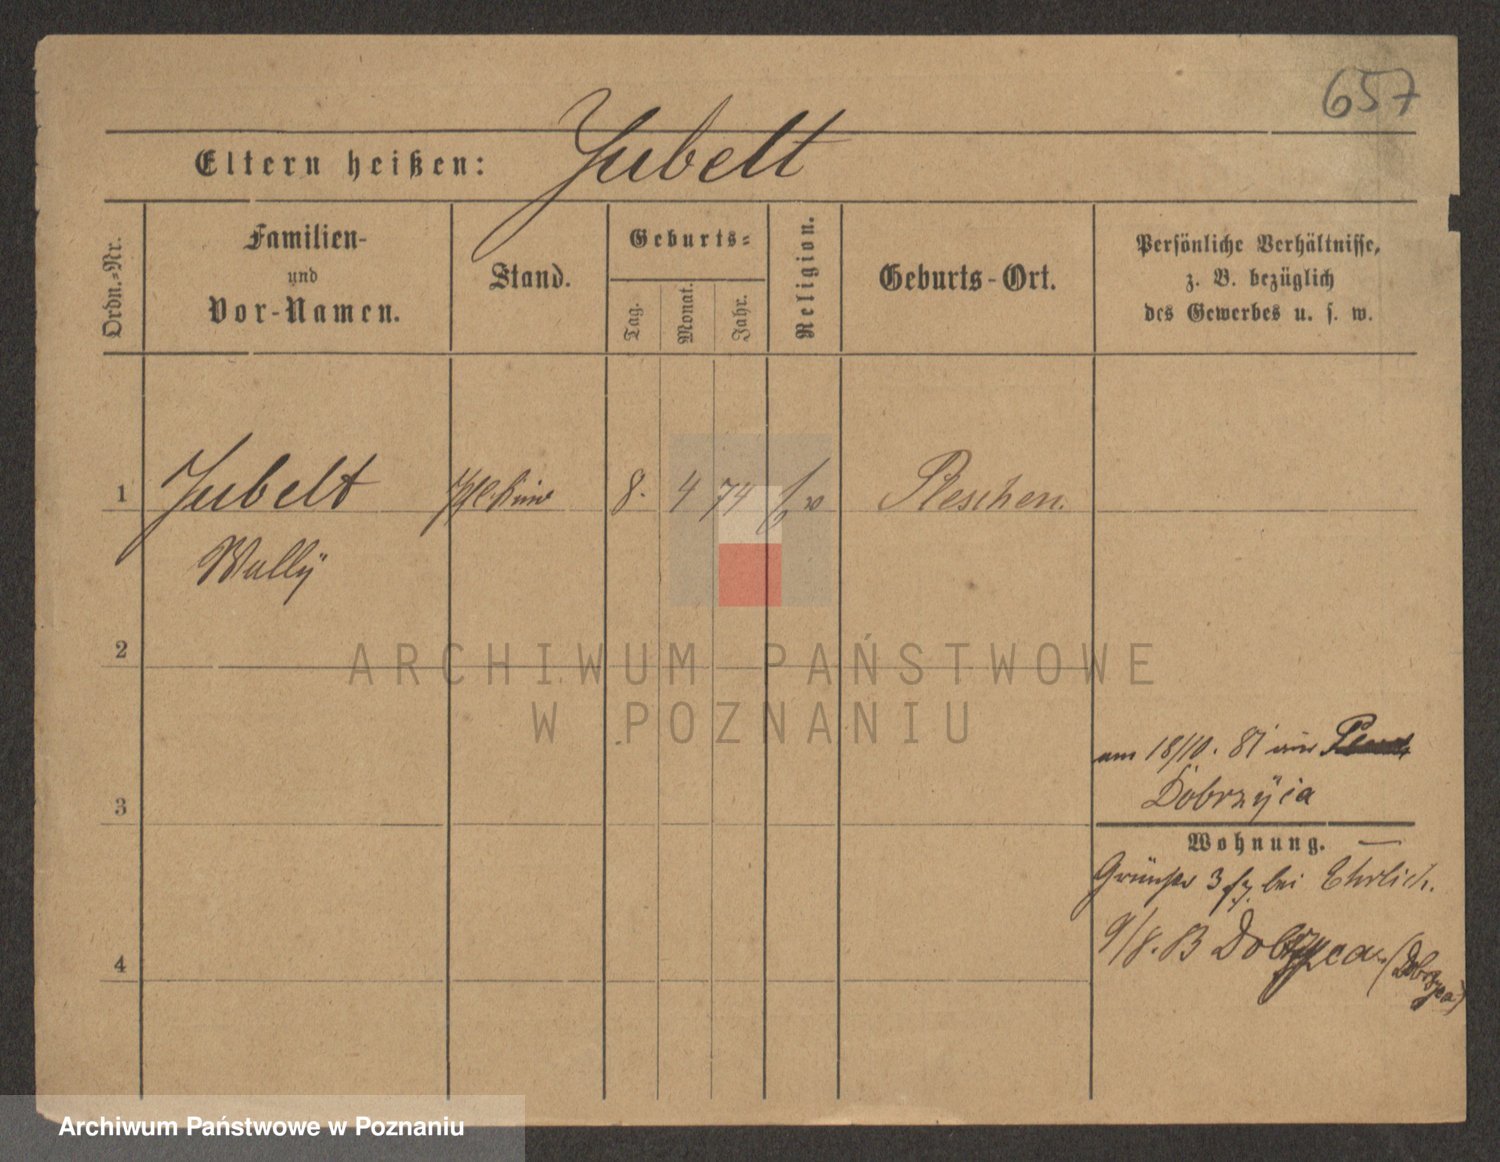 657
Eltern heißen: Jubelt
Ordn.-Nr.
Familien-
und
Vor-Namen.
Stand.
Geburts-
Tag.
Monat.
Jahr.
Religion.
Geburts-Ort.
Persönliche Verhältnisse,
z. B. bezüglich
des Gewerbes u. s. w.
1 Jubelt 8. 4 74 Pleschen.
Wally
2
ARCHIWUM PAŃSTWOWE
W POZNANIU
am 18/10. 87 aus
Dobrzyca
3
Wohnung.
3 bei Ehrlich.
Dobrzyca. (Dobrzyca)
4
Archiwum Państwowe w Poznaniu